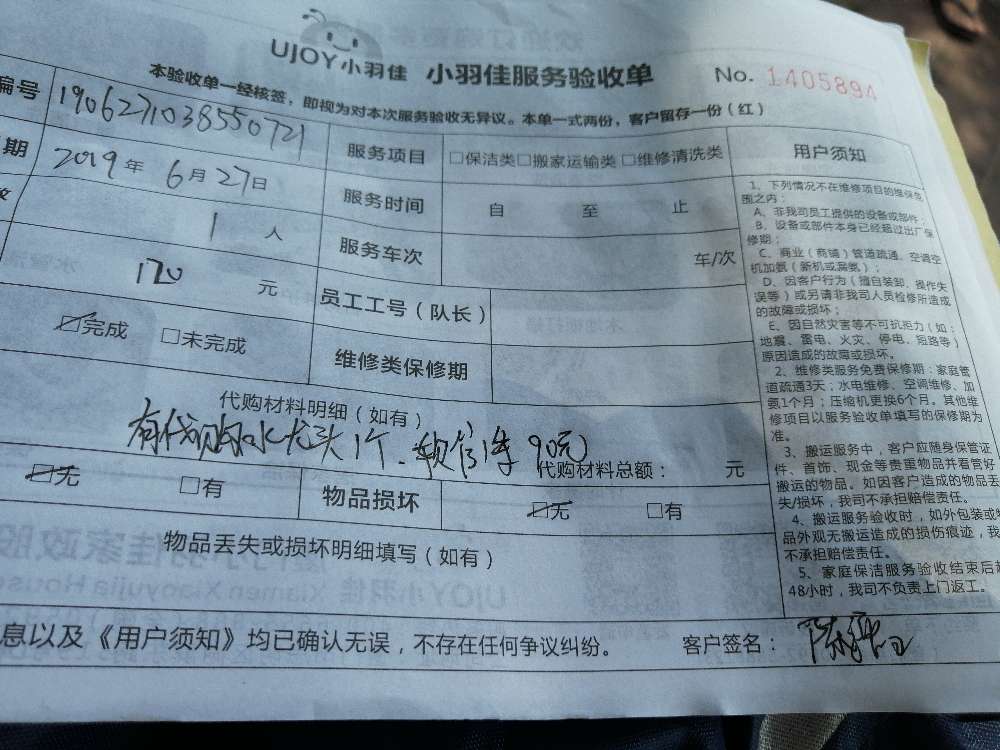 UJOY小羽佳 小羽佳服务验收单 No. 1405894
本验收单一经核签，即视为对本次服务验收无异议。本单一式两份，客户留存一份（红）
编号 190627103855 0721
服务项目 □保洁类 □搬家运输类 □维修清洗类
用户须知
期 2019年6月27日
服务时间 自 至 止
1人
服务车次 车/次
120元
员工工号（队长）
☑完成 □未完成
维修类保修期
代购材料明细（如有）
有代购水龙头1个、软管1条 90元
代购材料总额： 元
☑无 □有
物品损坏 ☑无 □有
物品丢失或损坏明细填写（如有）
息以及《用户须知》均已确认无误，不存在任何争议纠纷。
客户签名：
1、下列情况不在维修项目的维保范
围之内：
A、非我司员工提供的设备或部件；
B、设备或部件本身已经超过出厂保
修期；
C、商业（商铺）管道疏通、空调空
机加氨（新机或漏氨）；
D、因客户行为（擅自装卸、操作失
误等）或另请非我司人员检修所造成
的故障或损坏；
E、因自然灾害等不可抗拒力（如：
地震、雷电、火灾、停电、短路等）
原因造成的故障或损坏。
2、维修类服务免费保修期：家庭管
道疏通3天；水电维修、空调维修、加
氨1个月；压缩机更换6个月。其他维
修项目以服务验收单填写的保修期为
准。
3、搬运服务中，客户应随身保管证
件、首饰、现金等贵重物品并看管好
搬运的物品。如因客户造成的物品丢
失/损坏，我司不承担赔偿责任。
4、搬运服务验收时，如外包装或物
品外观无搬运造成的损伤痕迹，我
不承担赔偿责任。
5、家庭保洁服务验收结束后超
48小时，我司不负责上门返工。